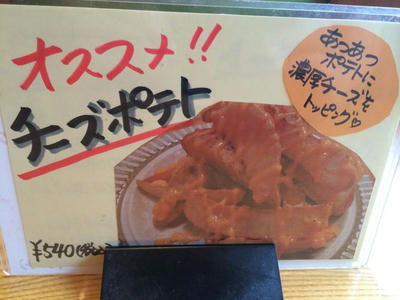 オススメ!!
チーズポテト
あつあつ
ポテトに
濃厚チーズを
トッピング♡
¥540